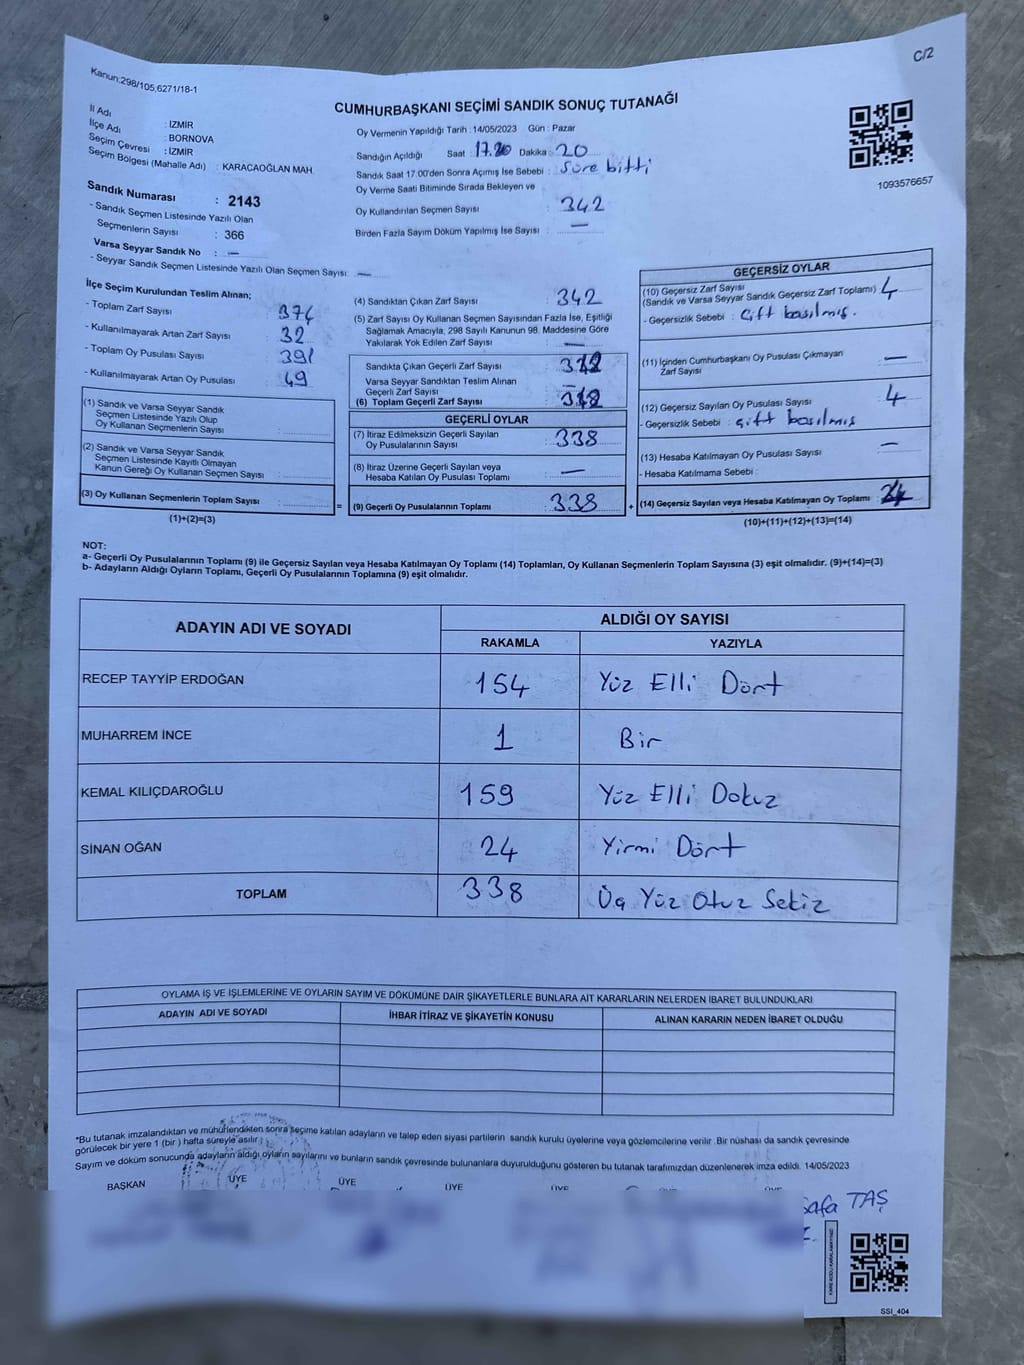 C/2
Kanun:298/105,6271/18-1
CUMHURBAŞKANI SEÇİMİ SANDIK SONUÇ TUTANAĞI
İl Adı : İZMİR
İlçe Adı : BORNOVA
Seçim Çevresi : İZMİR
Seçim Bölgesi (Mahalle Adı) : KARACAOĞLAN MAH.
Sandık Numarası : 2143
- Sandık Seçmen Listesinde Yazılı Olan
Seçmenlerin Sayısı : 366
Varsa Seyyar Sandık No : —
- Seyyar Sandık Seçmen Listesinde Yazılı Olan Seçmen Sayısı: —
Oy Vermenin Yapıldığı Tarih : 14/05/2023 Gün : Pazar
Sandığın Açıldığı Saat : 17.20 Dakika : 20
Sandık Saat 17:00'den Sonra Açılmış İse Sebebi : Süre bitti
Oy Verme Saati Bitiminde Sırada Bekleyen ve
Oy Kullandırılan Seçmen Sayısı : 342
Birden Fazla Sayım Döküm Yapılmış İse Sayısı : —
1093576657
İlçe Seçim Kurulundan Teslim Alınan;
- Toplam Zarf Sayısı : 374
- Kullanılmayarak Artan Zarf Sayısı : 32
- Toplam Oy Pusulası Sayısı : 391
- Kullanılmayarak Artan Oy Pusulası : 49
(1) Sandık ve Varsa Seyyar Sandık
Seçmen Listesinde Yazılı Olup
Oy Kullanan Seçmenlerin Sayısı :
(2) Sandık ve Varsa Seyyar Sandık
Seçmen Listesinde Kayıtlı Olmayan
Kanun Gereği Oy Kullanan Seçmen Sayısı :
(3) Oy Kullanan Seçmenlerin Toplam Sayısı :
(1)+(2)=(3)
=
(4) Sandıktan Çıkan Zarf Sayısı : 342
(5) Zarf Sayısı Oy Kullanan Seçmen Sayısından Fazla İse, Eşitliği
Sağlamak Amacıyla, 298 Sayılı Kanunun 98. Maddesine Göre
Yakılarak Yok Edilen Zarf Sayısı : —
Sandıkta Çıkan Geçerli Zarf Sayısı :
Varsa Seyyar Sandıktan Teslim Alınan
Geçerli Zarf Sayısı : —
(6) Toplam Geçerli Zarf Sayısı :
GEÇERLİ OYLAR
(7) İtiraz Edilmeksizin Geçerli Sayılan
Oy Pusulalarının Sayısı : 338
(8) İtiraz Üzerine Geçerli Sayılan veya
Hesaba Katılan Oy Pusulası Toplamı : —
(9) Geçerli Oy Pusulalarının Toplamı : 338
+
GEÇERSİZ OYLAR
(10) Geçersiz Zarf Sayısı
(Sandık ve Varsa Seyyar Sandık Geçersiz Zarf Toplamı) : 4
- Geçersizlik Sebebi : Çift basılmış.
(11) İçinden Cumhurbaşkanı Oy Pusulası Çıkmayan
Zarf Sayısı : —
(12) Geçersiz Sayılan Oy Pusulası Sayısı : 4
- Geçersizlik Sebebi : çift basılmış
(13) Hesaba Katılmayan Oy Pusulası Sayısı : —
- Hesaba Katılmama Sebebi :
(14) Geçersiz Sayılan veya Hesaba Katılmayan Oy Toplamı : 4
(10)+(11)+(12)+(13)=(14)
NOT:
a- Geçerli Oy Pusulalarının Toplamı (9) ile Geçersiz Sayılan veya Hesaba Katılmayan Oy Toplamı (14) Toplamları, Oy Kullanan Seçmenlerin Toplam Sayısına (3) eşit olmalıdır. (9)+(14)=(3)
b- Adayların Aldığı Oyların Toplamı, Geçerli Oy Pusulalarının Toplamına (9) eşit olmalıdır.
ADAYIN ADI VE SOYADI
ALDIĞI OY SAYISI
RAKAMLA YAZIYLA
RECEP TAYYİP ERDOĞAN 154 Yüz Elli Dört
MUHARREM İNCE 1 Bir
KEMAL KILIÇDAROĞLU 159 Yüz Elli Dokuz
SİNAN OĞAN 24 Yirmi Dört
TOPLAM 338 Üç Yüz Otuz Sekiz
OYLAMA İŞ VE İŞLEMLERİNE VE OYLARIN SAYIM VE DÖKÜMÜNE DAİR ŞİKAYETLERLE BUNLARA AİT KARARLARIN NELERDEN İBARET BULUNDUKLARI
ADAYIN ADI VE SOYADI İHBAR İTİRAZ VE ŞİKAYETİN KONUSU ALINAN KARARIN NEDEN İBARET OLDUĞU
*Bu tutanak imzalandıktan ve mühürlendikten sonra seçime katılan adayların ve talep eden siyasi partilerin sandık kurulu üyelerine veya gözlemcilerine verilir .Bir nüshası da sandık çevresinde
görülecek bir yere 1 (bir ) hafta süreyle asılır .
Sayım ve döküm sonucunda adayların aldığı oyların sayılarını ve bunların sandık çevresinde bulunanlara duyurulduğunu gösteren bu tutanak tarafımızdan düzenlenerek imza edildi. 14/05/2023
BAŞKAN ÜYE ÜYE ÜYE ÜYE
Safa TAŞ
SSİ_404